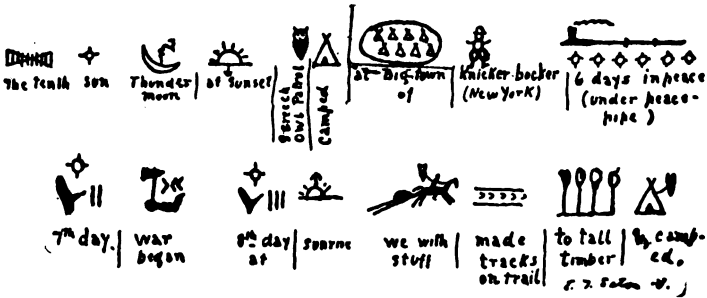 The Tenth Sun Thunder moon at Sunset Screech Owl Patrol Camped at Big town of Knicker-bocker (New York) 6 days in peace (under peace-pipe)
7th day. war began 8th day at Sunrise we with stuff made tracks on trail to tall timber & camp-ed.
E. T. Seton